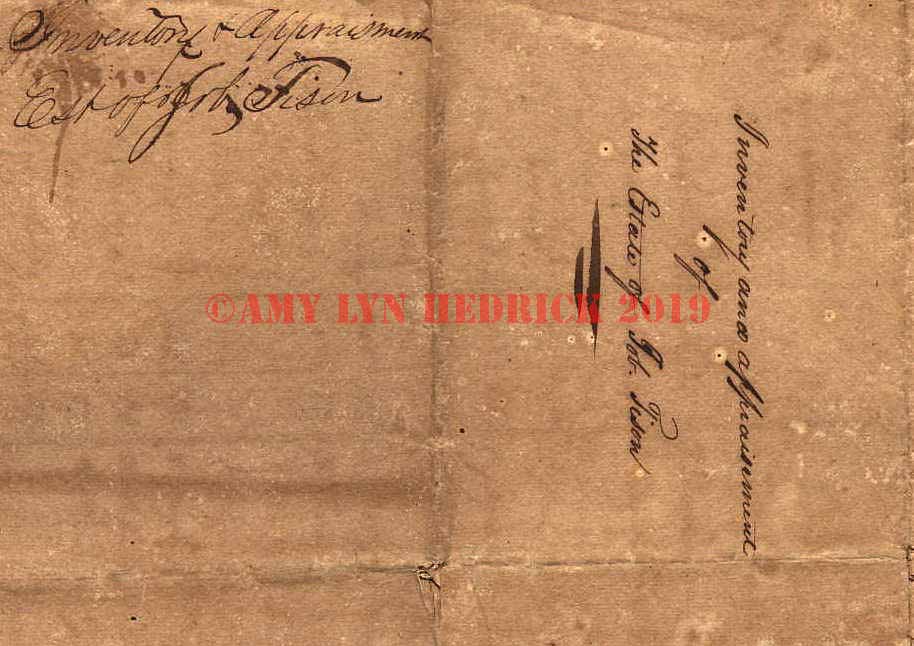 Inventory & Appraisment
Est of Job Tison
Inventory and appraisement
of
The Estate of Job. Tison
©AMY LYN HEDRICK 2019